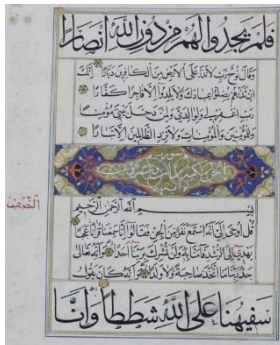 فلم يجدوا لهم من دون الله انصارا
وقال نوح رب لا تذر على الأرض من الكافرين ديارا انك
ان تذرهم يضلوا عبادك ولا يلدوا الا فاجرا كفارا
رب اغفر لي ولوالدي ولمن دخل بيتي مؤمنا
وللمؤمنين والمؤمنات ولا تزد الظالمين الا تبارا
بسم الله الرحمن الرحيم
قل اوحي الي انه استمع نفر من الجن فقالوا انا سمعنا قرآنا عجبا
يهدي الى الرشد فآمنا به ولن نشرك بربنا احدا وانه تعالى
جد ربنا ما اتخذ صاحبة ولا ولدا وانه كان يقول
سفيهنا على الله شططا وانا